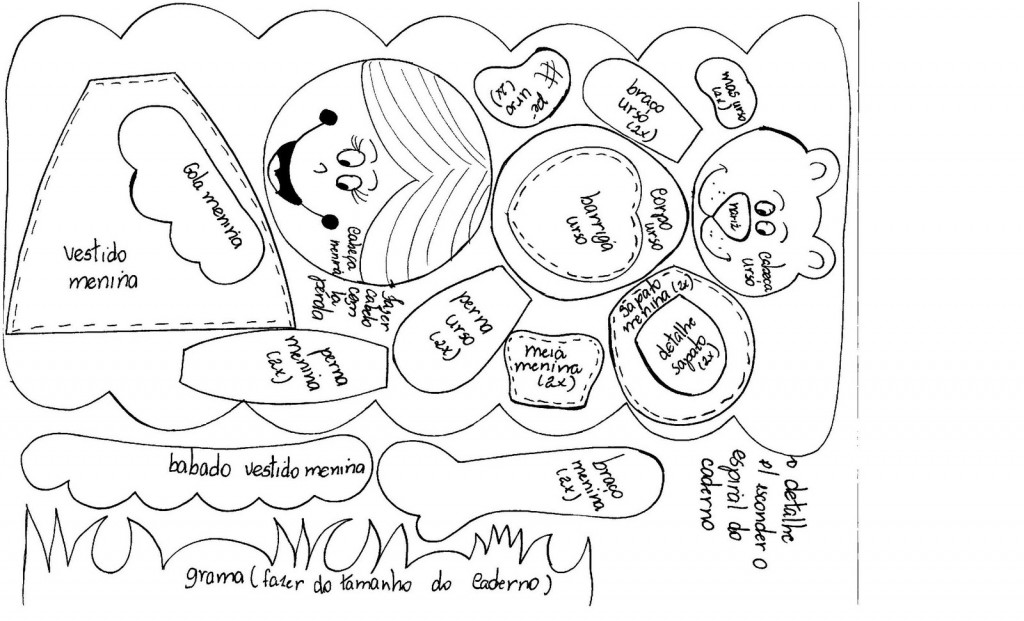 vestido
menina
Gola menina
cabeça
menina
fazer
cabelo
com
lã
pérola
pé
urso
(2x)
braço
urso
(2x)
mãos urso
(2x)
barriga
urso
corpo
urso
nariz
cabeça
urso
perna
urso
(2x)
perna
menina
(2x)
meia
menina
(2x)
sapato
menina (2x)
detalhe
sapato
(2x)
babado vestido menina
braço
menina
(2x)
detalhe
p/ esconder o
espiral do
caderno
grama (fazer do tamanho do caderno)